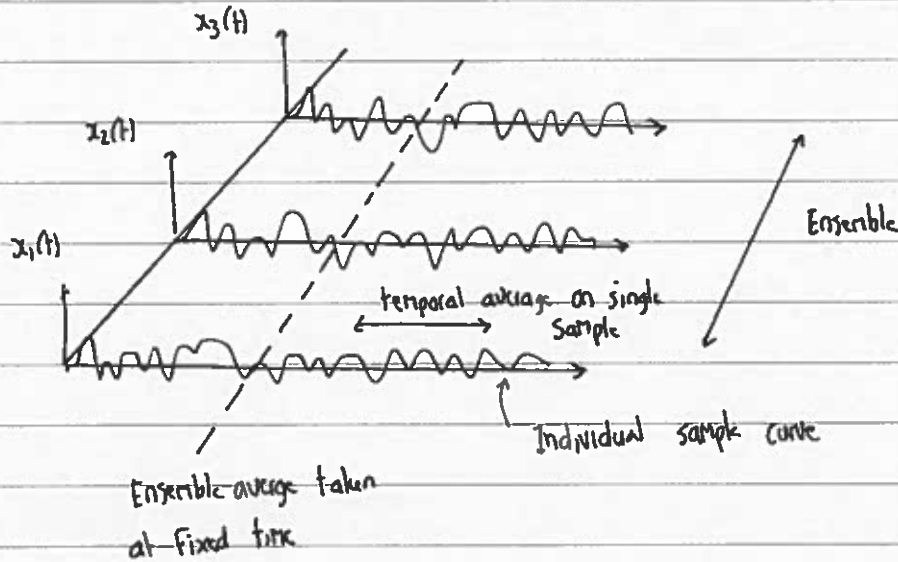 x₃(t)
x₂(t)
x₁(t)
Ensemble
temporal average on single
sample
Individual sample curve
Ensemble average taken
at fixed time